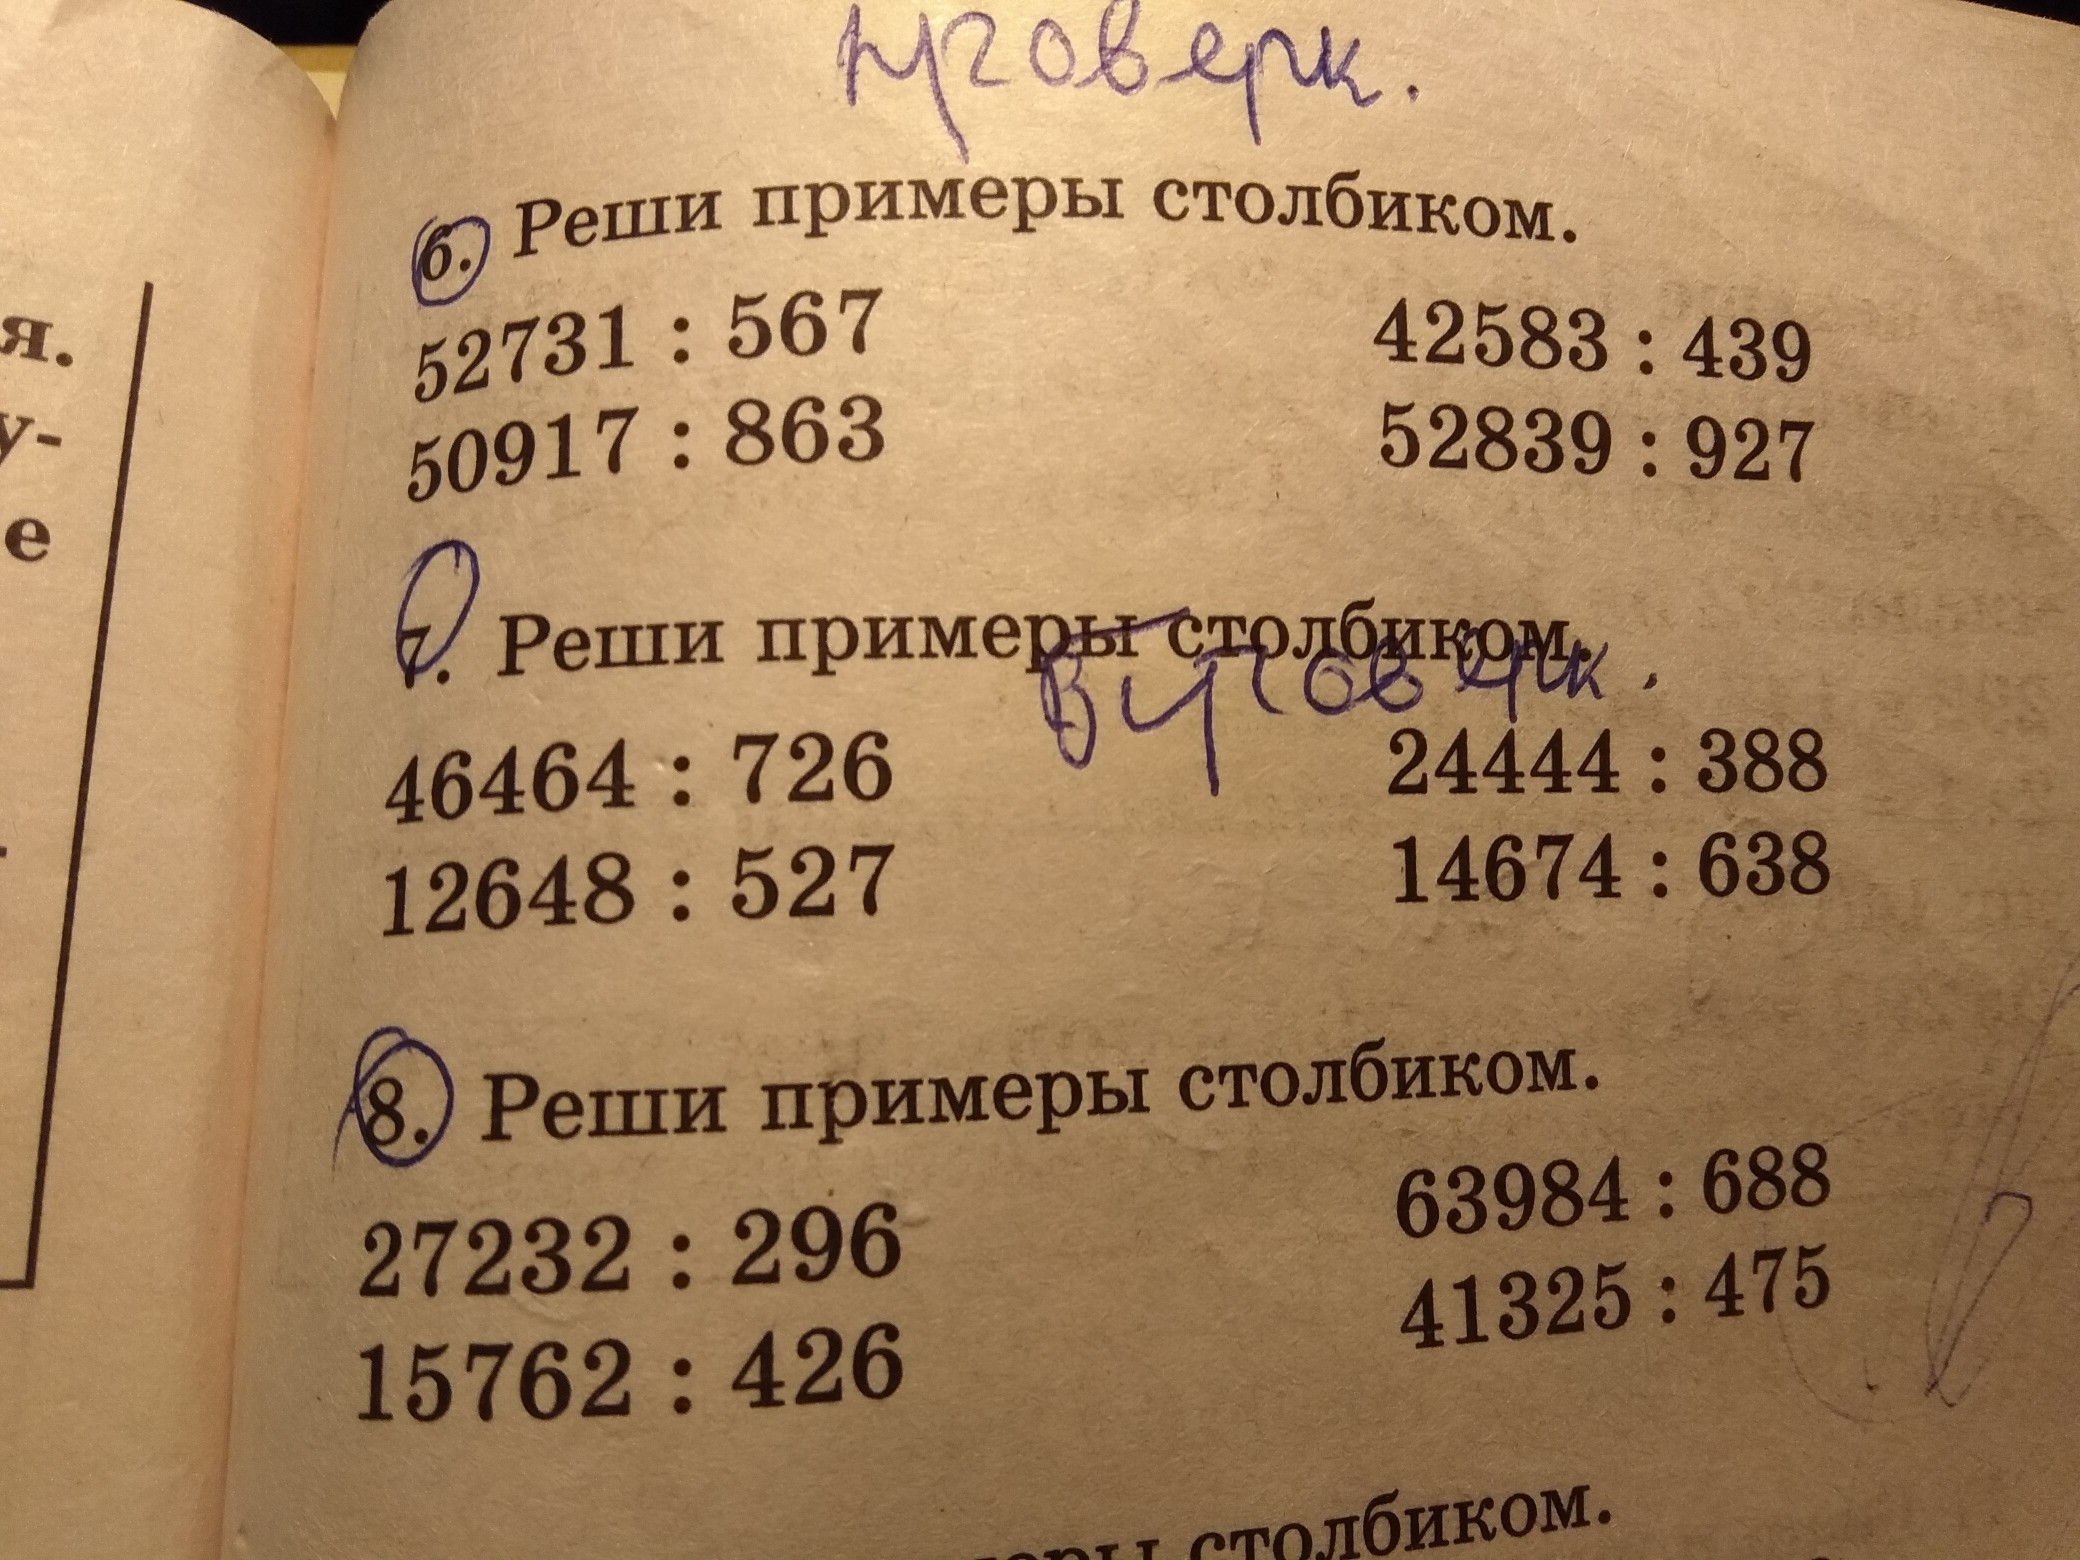 проверк.
6. Реши примеры столбиком.
52731 : 567 42583 : 439
50917 : 863 52839 : 927
7. Реши примеры столбиком.
46464 : 726 24444 : 388
12648 : 527 14674 : 638
8. Реши примеры столбиком.
27232 : 296 63984 : 688
15762 : 426 41325 : 475
столбиком.
я.
у-
е